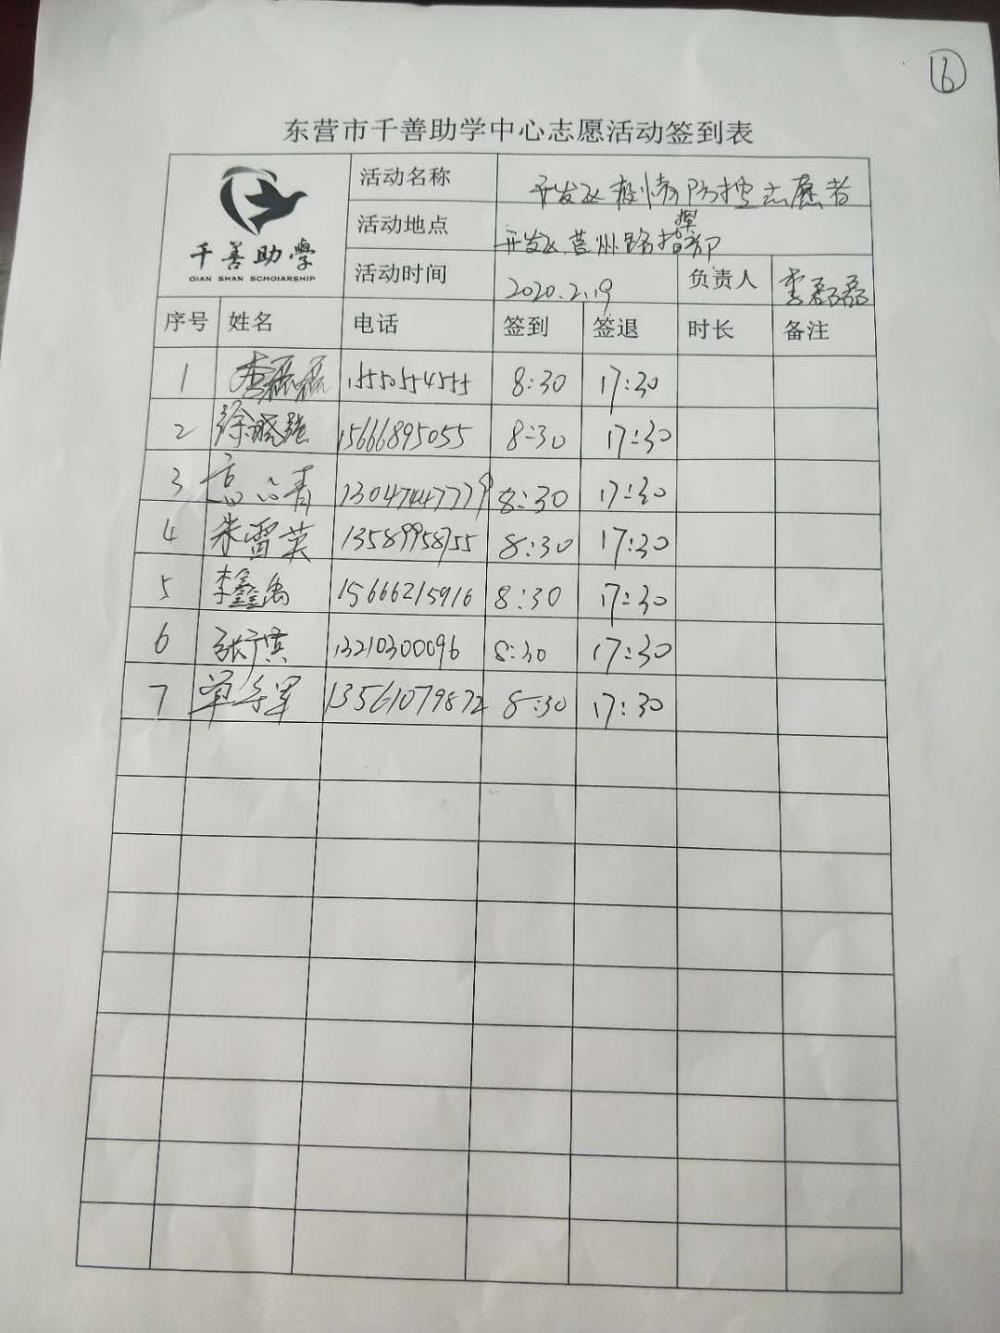 16
东营市千善助学中心志愿活动签到表
千善助学
QIAN SHAN SCHOIARSHIP
活动名称 开发区疫情防控志愿者
活动地点 开发区莒州路指挥部
活动时间 2020.2.19 负责人 李磊磊
序号 姓名 电话 签到 签退 时长 备注
1 李磊磊 15550554555 8:30 17:30
2 徐晓强 15666895055 8:30 17:30
3 8:30 17:30
4 朱雪英 13589958755 8:30 17:30
5 李鑫禹 15666215916 8:30 17:30
6 张广淇 13210300096 8:30 17:30
7 单 军 13561079872 8:30 17:30